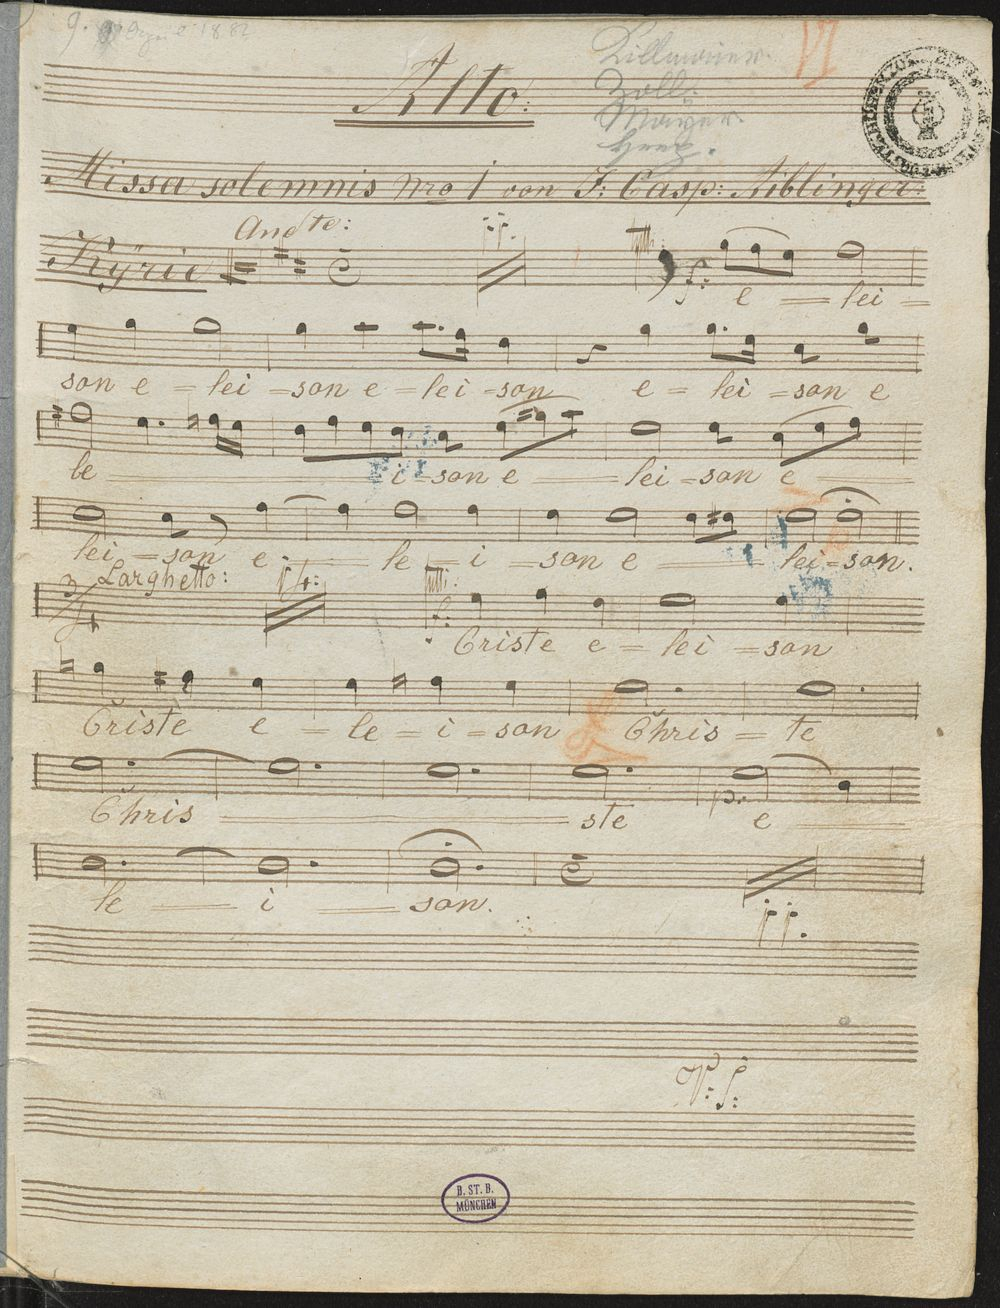 9. April 1882
VI
Zoll.
Mayer.
Alto:
Missa solemnis Nro 1 von J: Casp: Aiblinger:
Andte:
Kÿrie tutti: f: e = lei =
son e = lei = son e = lei = son e = lei = son e
le i = son e lei = son e
lei = son e le = i = son e lei = son.
Larghetto:
3/4 tutti: f: Criste e = lei = son
Criste e = le = i = son Chris = te
p: Chris ste e
le i son.
B. ST. B.
MÜNCHEN